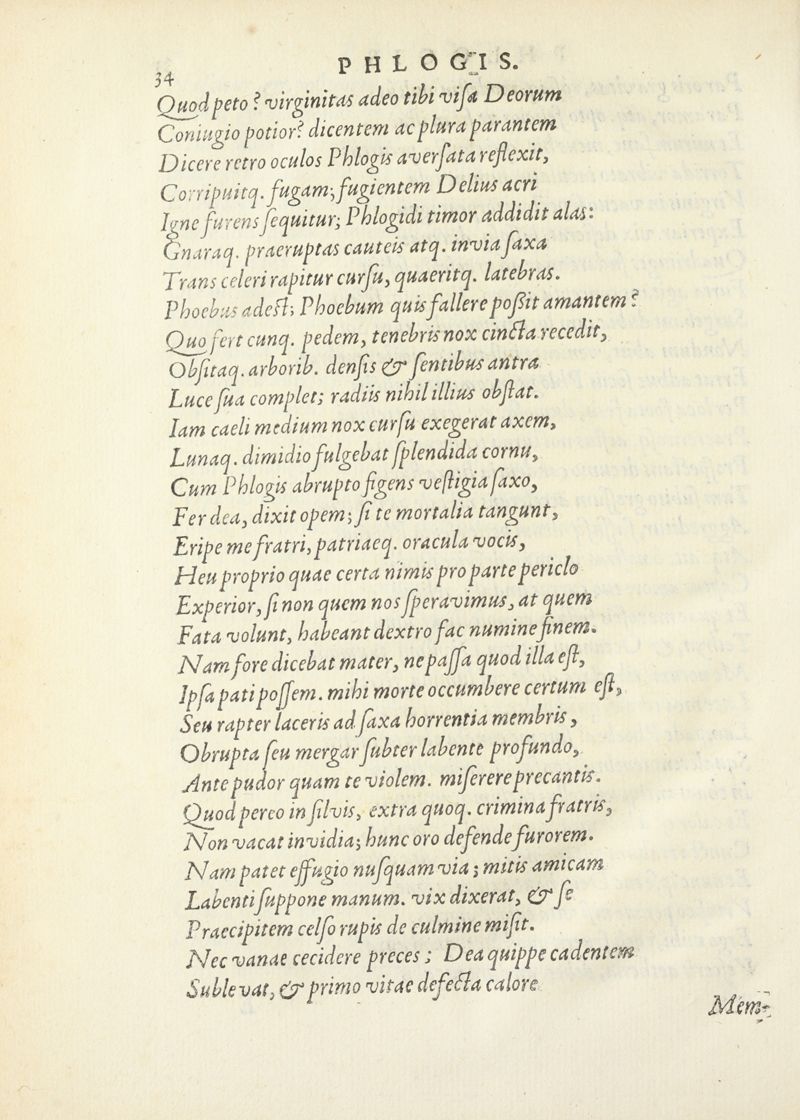 34
PHLOGIS.
Quod peto? virginitas adeo tibi visa Deorum
Coniugio potior? dicentem ac plura parantem
Dicere retro oculos Phlogis aversata reflexit,
Corripuitq. fugam; fugientem Delius acri
Igne furens sequitur; Phlogidi timor addidit alas:
Gnaraq. praeruptas cauteis atq. invia saxa
Trans celeri rapitur cursu, quaeritq. latebras.
Phoebus adest; Phoebum quis fallere possit amantem?
Quo fert cunq. pedem, tenebris nox cincta recedit,
Obsitaq. arborib. densis & sentibus antra
Luce sua complet; radiis nihil illius obstat.
Iam caeli medium nox cursu exegerat axem,
Lunaq. dimidio fulgebat splendida cornu,
Cum Phlogis abrupto figens vestigia saxo,
Fer dea, dixit opem; si te mortalia tangunt,
Eripe me fratri, patriaeq. oracula vocis,
Heu proprio quae certa nimis pro parte periclo
Experior, si non quem nos speravimus, at quem
Fata volunt, habeant dextro fac numine finem.
Nam fore dicebat mater, ne passa quod illa est,
Ipsa pati possem. mihi morte occumbere certum est,
Seu rapter laceris ad saxa horrentia membris,
Obrupta seu mergar subter labente profundo,
Ante pudor quam te violem. miserere precantis.
Quod pereo in silvis, extra quoq. crimina fratris,
Non vacat invidia; hunc oro defende furorem.
Nam patet effugio nusquam via; mitis amicam
Labenti suppone manum. vix dixerat, & se
Praecipitem celso rupis de culmine misit.
Nec vanae cecidere preces; Dea quippe cadentem
Sublevat, & primo vitae defecta calore
Mem-